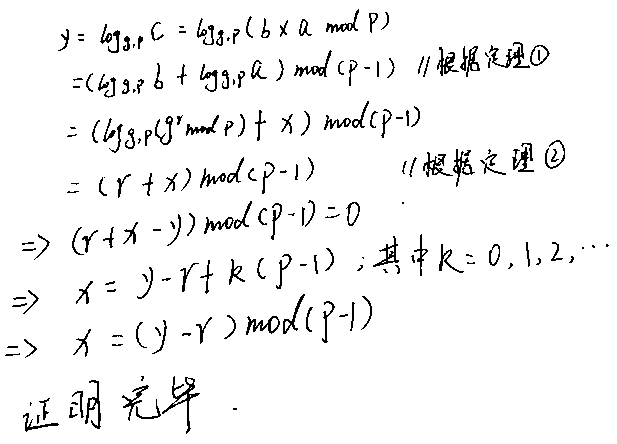 y = log_{g,p} C = log_{g,p}(b × a mod P)
= (log_{g,p} b + log_{g,p} a) mod (p-1) //根据定理①
= (log_{g,p}(g^r mod p) + x) mod (p-1)
= (r + x) mod (p-1) //根据定理②
=> (r+x-y) mod (p-1) = 0
=> x = y-r+k(p-1), 其中k=0,1,2,…
=> x = (y-r) mod (p-1)
证明完毕.